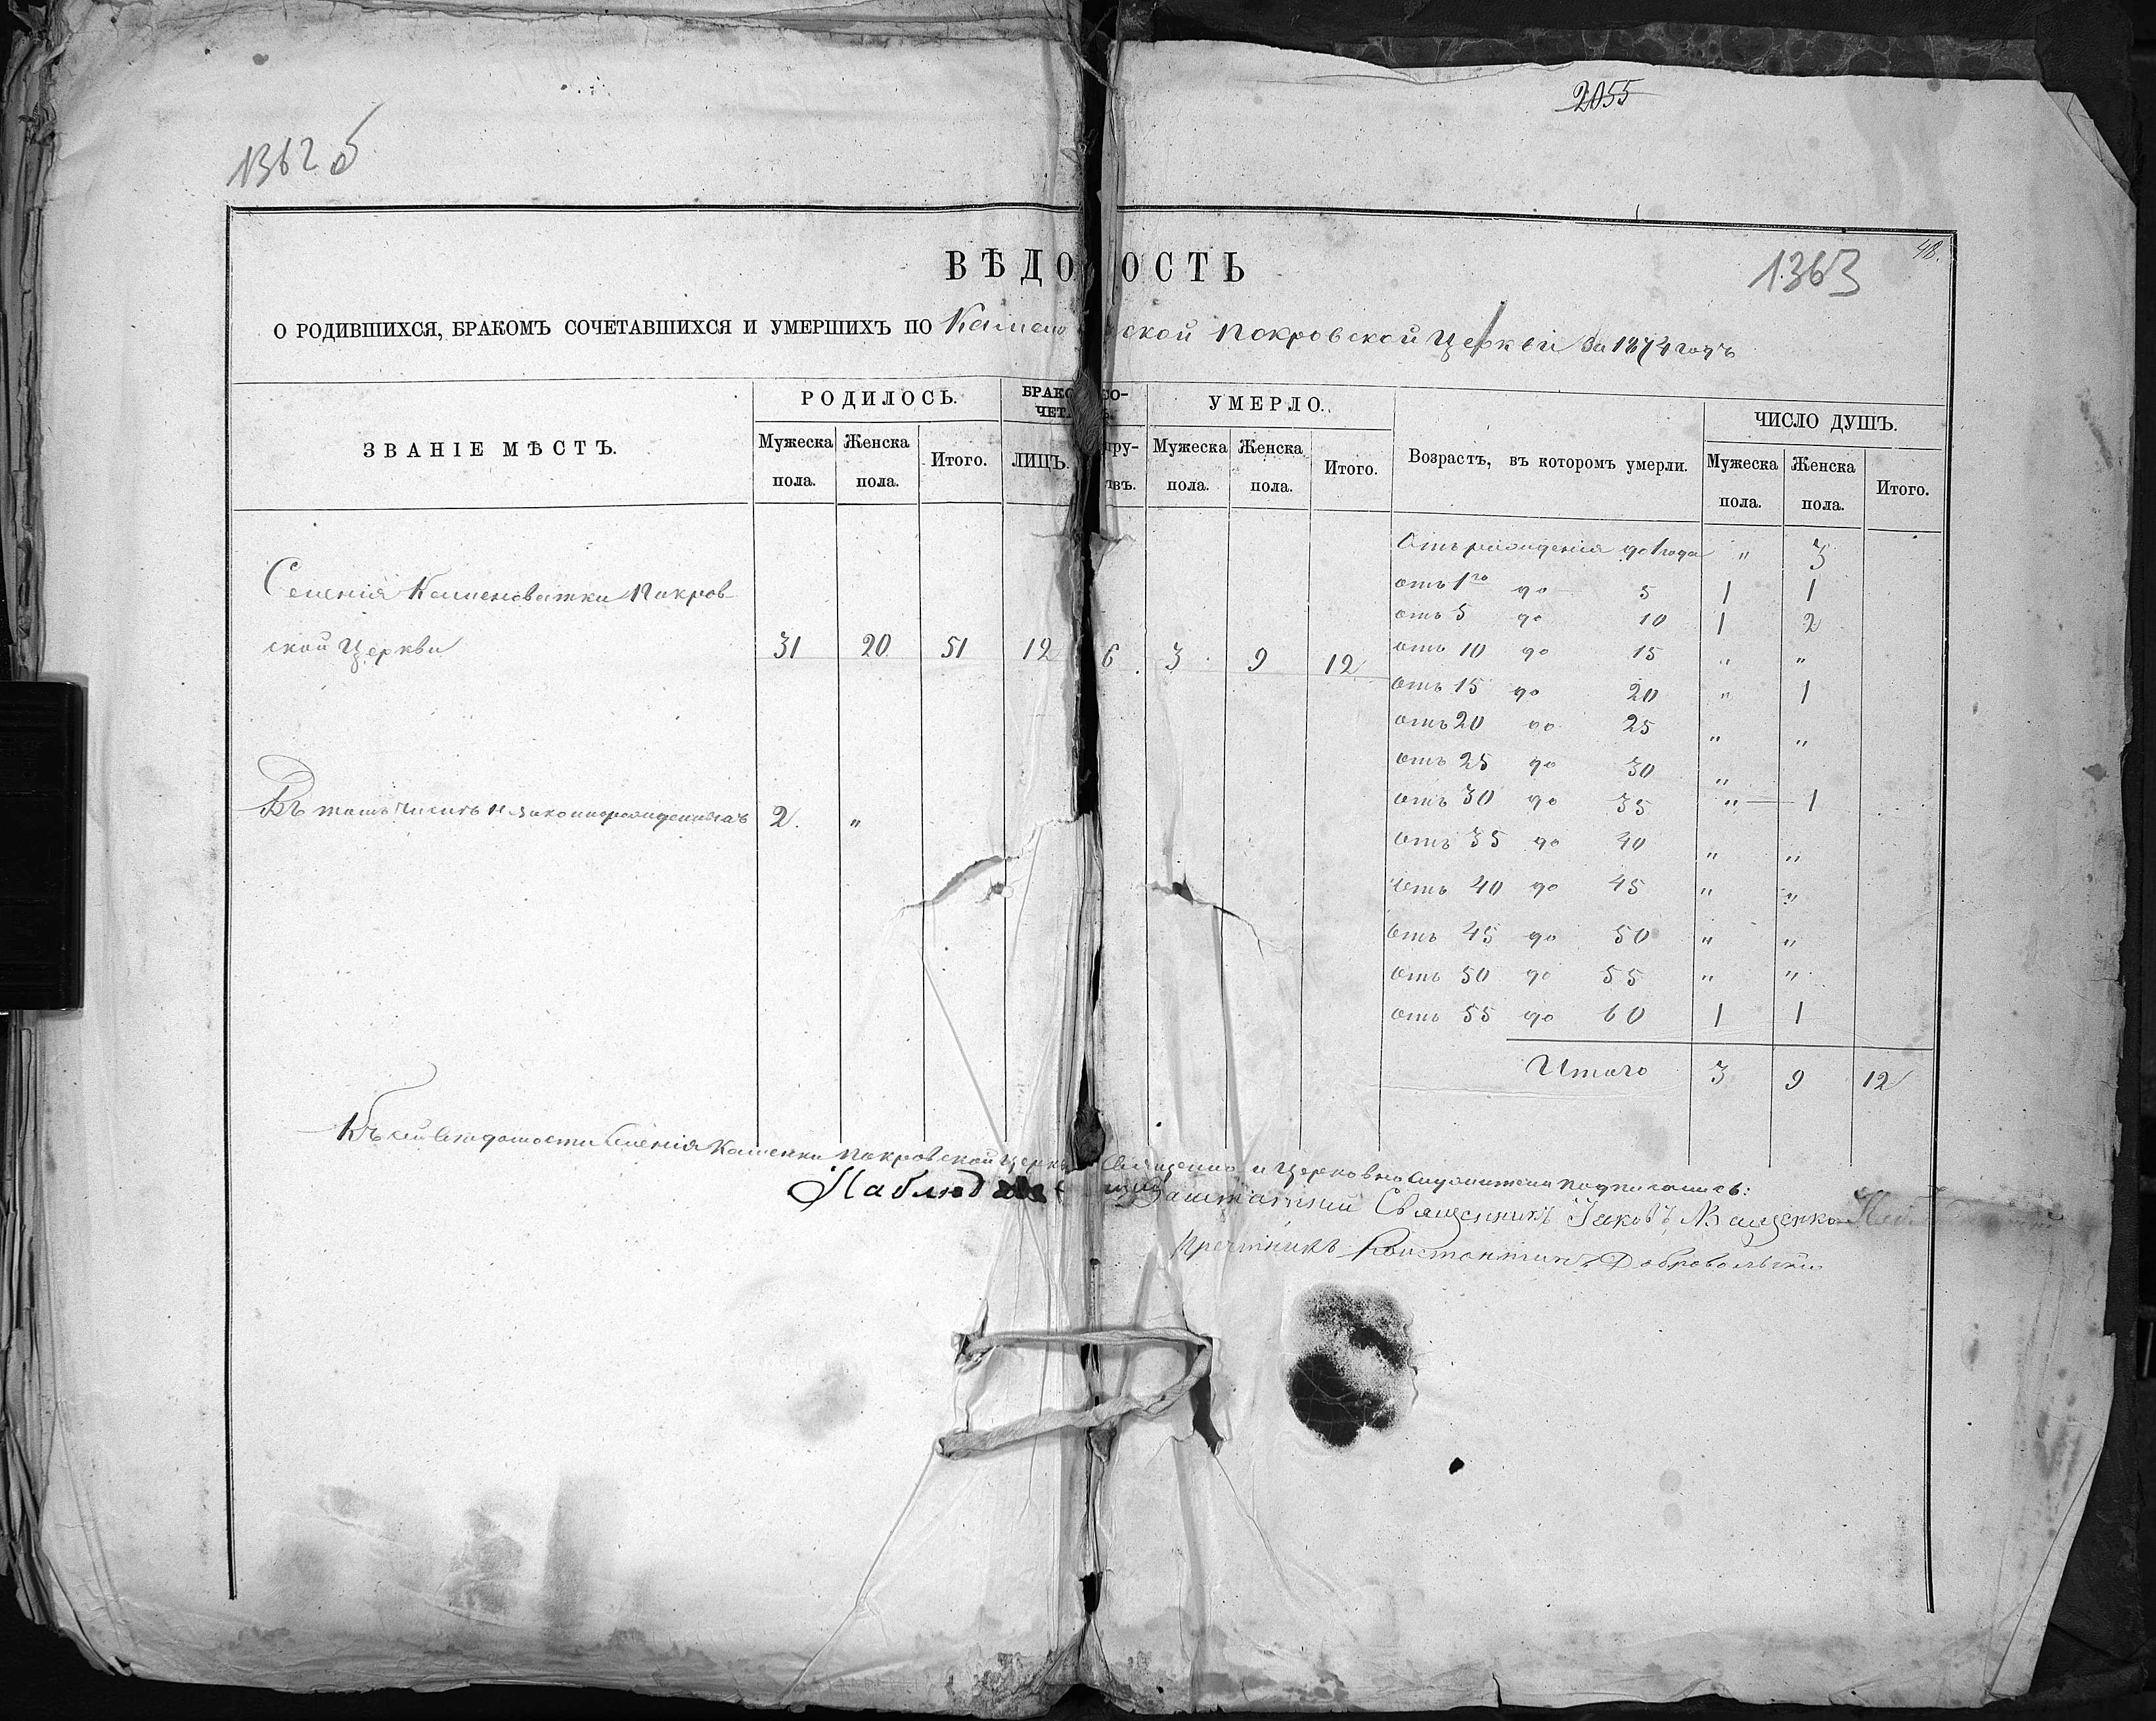 2055
1362 об
48.
1363
ВѢДО ОСТЬ
О РОДИВШИХСЯ, БРАКОМЪ СОЧЕТАВШИХСЯ И УМЕРШИХЪ ПО Камено ской Покровской Церкви за 1874 годъ
ЗВАНІЕ МѢСТЪ.
РОДИЛОСЬ.
Мужеска пола.
Женска пола.
Итого.
БРАКО СО-
ЧЕТА
ЛИЦЪ.
УМЕРЛО.
Мужеска пола.
Женска пола.
Итого.
Возрастъ, въ которомъ умерли.
ЧИСЛО ДУШЪ.
Мужеска пола.
Женска пола.
Итого.
Селенія Каменоватки Покров-
ской Церкви 31 20 51 12 6 3 9 12
Въ томъ числѣ незаконнорожденныхъ 2. "
Отъ рожденія до 1 года " 3
отъ 1го до 5 1 1
отъ 5 до 10 1 2
отъ 10 до 15 " "
отъ 15 до 20 " 1
отъ 20 до 25 " "
отъ 25 до 30 "
отъ 30 до 35 " — 1
отъ 35 до 40 " "
отъ 40 до 45 " "
отъ 45 до 50 " "
отъ 50 до 55 " "
отъ 55 до 60 1 1
Итого 3 9 12
Къ сей вѣдомости селенія Каменки Покровской Церкви Священно и Церковно служители подписались:
Наблюд Заштатный Священникъ Іаковъ Ващенко
Причтникъ Константинъ Добровольскій